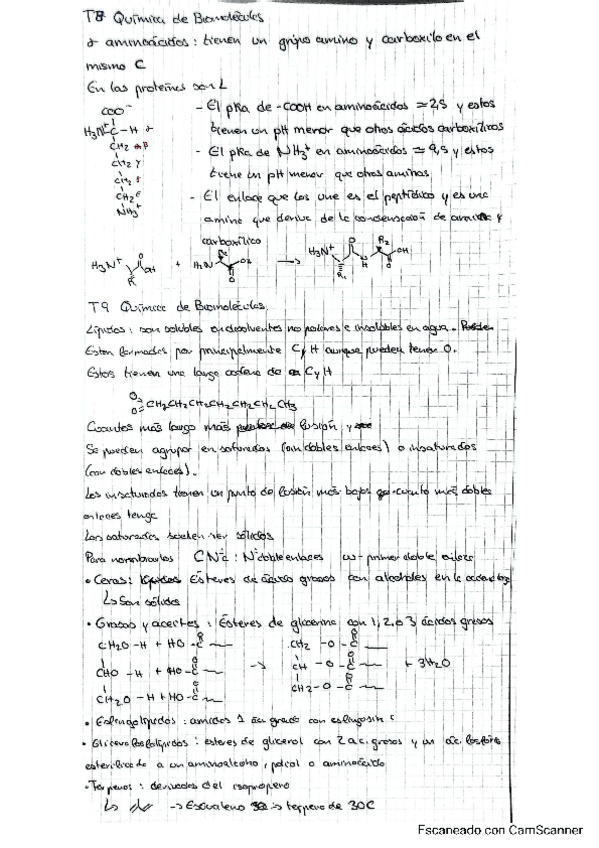 T8 Química de Biomoléculas
α aminoácidos: tienen un grupo amino y carboxilo en el
mismo C
En las proteínas son L
COO⁻
H₃N⁺-C-H α
CH₂ β
CH₂ γ
CH₂ δ
CH₂ ε
NH₃⁺
- El pKa de -COOH en aminoácidos ≈ 2,5 y estos
tienen un pH menor que otros ácidos carboxílicos
- El pKa de NH₃⁺ en aminoácidos ≈ 9,5 y estos
tiene un pH menor que otras aminas
- El enlace que los une es el peptídico y es una
amino que deriva de la condensación de amina y
carboxílico
H₃N⁺ OH R + H₂N OH → H₃N⁺ R₁ O N H R₂ OH O
T9 Química de Biomoléculas
Lípidos: son solubles en disolventes no polares e insolubles en agua. Pueden
Estan formados por principalmente C y H aunque pueden tener O.
Estos tienen una larga cadena de C y H
CH₂CH₂CH₂CH₂CH₂CH₂CH₂CH₃
Cuantos más largo más fusión y
Se pueden agrupar en saturados (sin dobles enlaces) o insaturados
(con dobles enlaces).
Los insaturados tienen un punto de fusión más bajos cuanto más dobles
enlaces tenga
Los saturados suelen ser sólidos
Para nombrarlos CNºc : Nºdoble enlaces ω- primer doble enlace
• Ceras: Ésteres de ácido grasos con alcoholes en la
↳ Son sólidos
• Grasas y aceites: Ésteres de glicerina con 1, 2, o 3 ácidos grasos
CH₂O-H + HO-C CH₂-O-C
CHO-H + HO-C → CH-O-C + 3H₂O
CH₂O-H + HO-C CH₂-O-C
• Esfingolípidos: amidas 1 ac graso con esfingosina
• Glicerofosfolípidos: esteres de glicerol con 2 ac. grasos y un ác. fosfórico
esterificado a un aminoalcohol, poliol o aminoácido
• Terpenos: derivados del isopropeno
↳ → Escualeno → terpeno de 30C
Escaneado con CamScanner